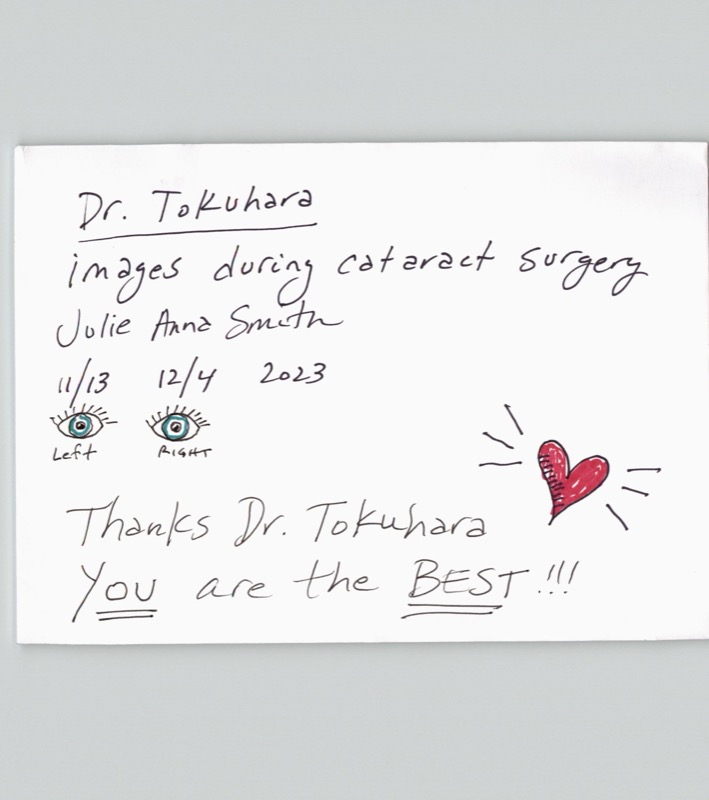 Dr. Tokuhara
images during cataract surgery
Julie Anna Smith
11/13 12/4 2023
Left RIGHT
Thanks Dr. Tokuhara
YOU are the BEST!!!